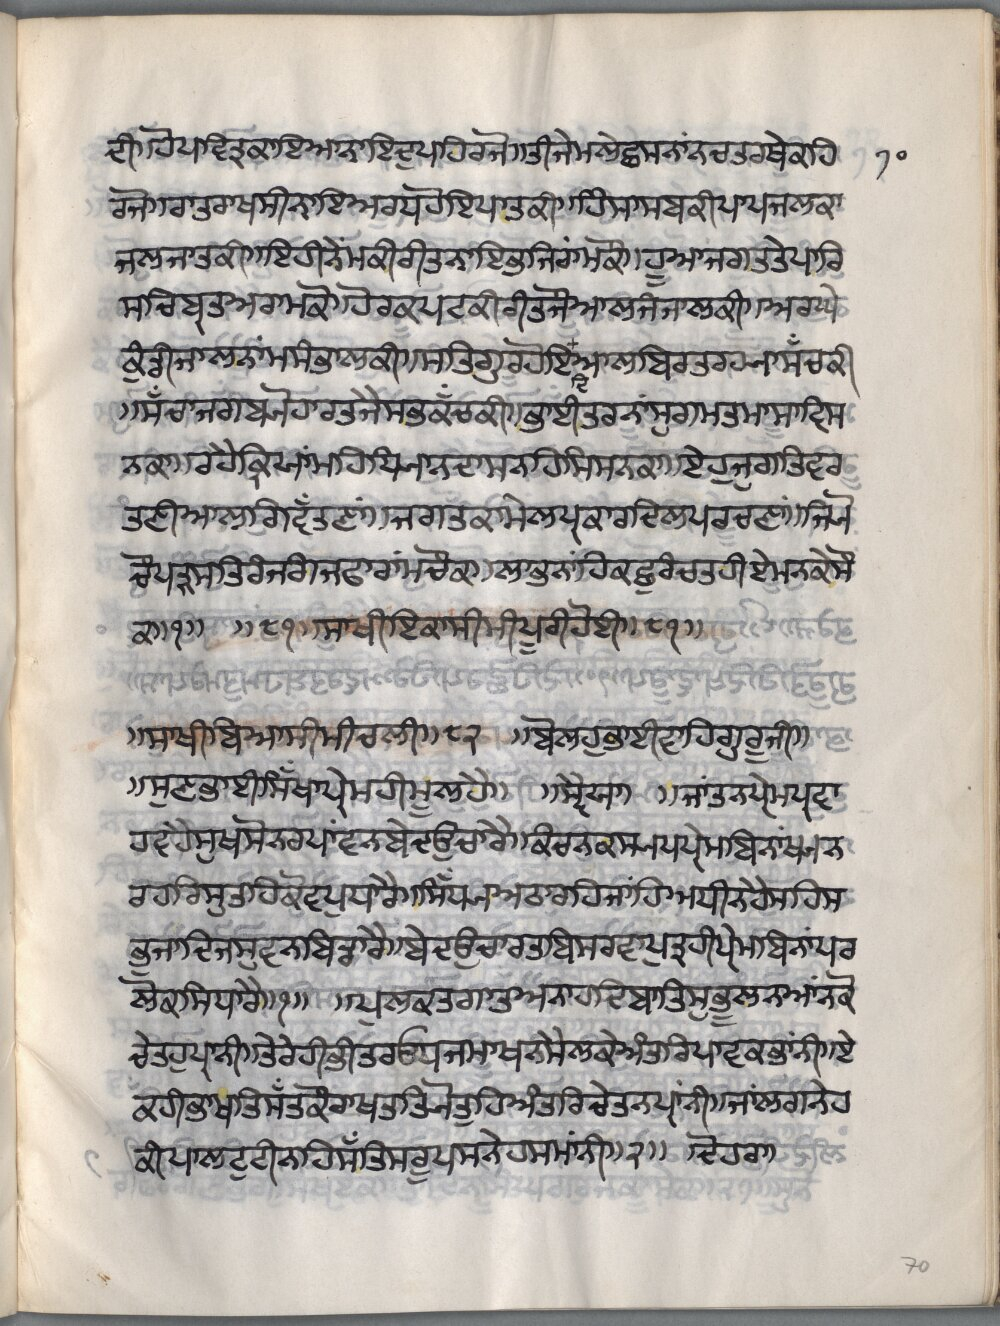 ਦੀ॥ਹੈਪਾਵਿਤ੍ਰਕਾਇਆਨਾਇਦ੍ਵਪਾਹਿਰਜੌ॥ਤੀਜੇਮਲੇਛਮਨਾਂਨਚਤਰਥੇਕਹਿ ੭੦
ਰਜੌ॥ਰਾਤਰਾਖਸੀਨਾਇਅਰਧਹੋਇਪਾਤਕੀ॥ਹਿੰਸਾਸਬਕੀਪਾਪਜਲਕਾ
ਜਲਜਾਤਕੀ॥ਇਹੀਨੇਮਕੀਰੀਤਨਾਇਭੁਜਿੰਗਮਕੌ॥ਹੂਆਜਗਤਤੇਪਾਰਿ
ਸਚਿਖ੍ਯਤਾਅਰਾਮਕੌ॥ਹੋਰਕਪਟਕੀਰੀਤਜੌਆਲਜੰਜਾਲਕੀ॥ਅਰਪੇ
ਕੁੰਡੀਜਾਲਨਾਂਮਸੰਭਾਲਕੀ॥ਸਤਿਗੁਰਹੋਇਦਿਆਲਬਿਰਤਰਹਨਾਸੱਚਕੀ
॥ਸੱਚਾਜਗਬਨੋਹਾਰਤਜੈਸਭਕੱਚਕੀ॥ਭਾਈਤਰਨਾਂਸੁਗਮਤਮਾਸਾਦਿਸ
ਨਕਾ॥ਰਹੈਕ੍ਰਿਯਾਂਮਹਿਧਿਆਨਦਾਸਨਹਿਸਿਸਨਕਾ॥ਏਹੁਜੁਗਤਿਵਰ
ਤਣੀਆਲਗਿਦੱਤਣਾਂ॥ਜਗਤਕਾਮੇਲਪਕਾਰਦਿਲਪਰਚਣਾਂ॥ਜਿਨੋ
ਚੌਪੜਸਤਿਰੰਜਗਿੰਜਫਾਰਾਂਮਚੌਕਾ॥ਲਾਭਨਾਂਹਿਕਛੁਰੰਚਤਹੀਏਮਨਕੇਸੌ
ਕਾ॥੧॥ ॥੮੧॥ਸਾਖੀਇਕਾਸੀਮੀਪੂਰੀਹੋਈ॥੮੧॥
॥ਸਾਖੀਬਿਆਸੀਮੀਚਲੀ॥੮੨ ॥ਬੋਲਹੁਭਾਈਵਾਹਿਗੁਰੂਜੀ॥
॥ਸੁਣਭਾਈਸਿੱਖਾਪ੍ਰੇਮਹੀਮੂਲਹੈ॥ ॥ਸ੍ਵੈਯਾ॥ ॥ਜਾਂਤਨਪ੍ਰੇਮਪ੍ਰਵਾ
ਹਵਹੈਸੁਖਸੋਨਰਪਾਂਵਨਬੇਦਉਚਾਰੈ॥ਕੰਚਨਕਾਮਨਪਪ੍ਰੇਮਬਿਨਾਂਖਨਨ
ਰਹਰਿਸੁਤਾਹਿਕੋਵਪੁਧਾਰੈ॥ਸਿੰਧਨਾਅਠਾਰਹਿਜਾਂਹਿਅਧੀਨਹੈਸਹਿਸ
ਭੁਜਾਦਿਜਸੁਵਨਬਿਡਾਰੈ॥ਬੇਦਉਚਾਰਤਬਿਸਰਵਾਪੜਹੀਪ੍ਰੇਮਬਿਨਾਂਪਰ
ਲੋਕਸਿਧਾਰੈ॥੧॥ ॥ਪੁਲਕਤਗਾਤਾਅਨਾਹਦਿਬਾਤਿਸੁਭੂਲਨਾਆਂਨਕੋ
ਚੇਤਹੁਪ੍ਰਾਨੀ॥ਤੇਰੇਹੀਭੀਤਰਓਪਜਮਾਖਨਮੈਲਕੇਅੰਤਰਿਪਾਵਕਭਾਂਨੀ॥ਏ
ਕਹੀਭਾਖਤਿਸੰਤਕੌਰਾਖਤਤਿਨੋਤੁਹਿਅੰਤਰਿਚੇਤਨਪਾਂਨੀ॥ਜਾਂਲਗਨੇਹ
ਕੀਪਾਲਟੁਟੀਨਹਿਸੱਤਿਸਰੂਪਸਨੇਹਸਮਾਂਨੀ॥੨॥ ॥ਦੋਹਰਾ॥
70